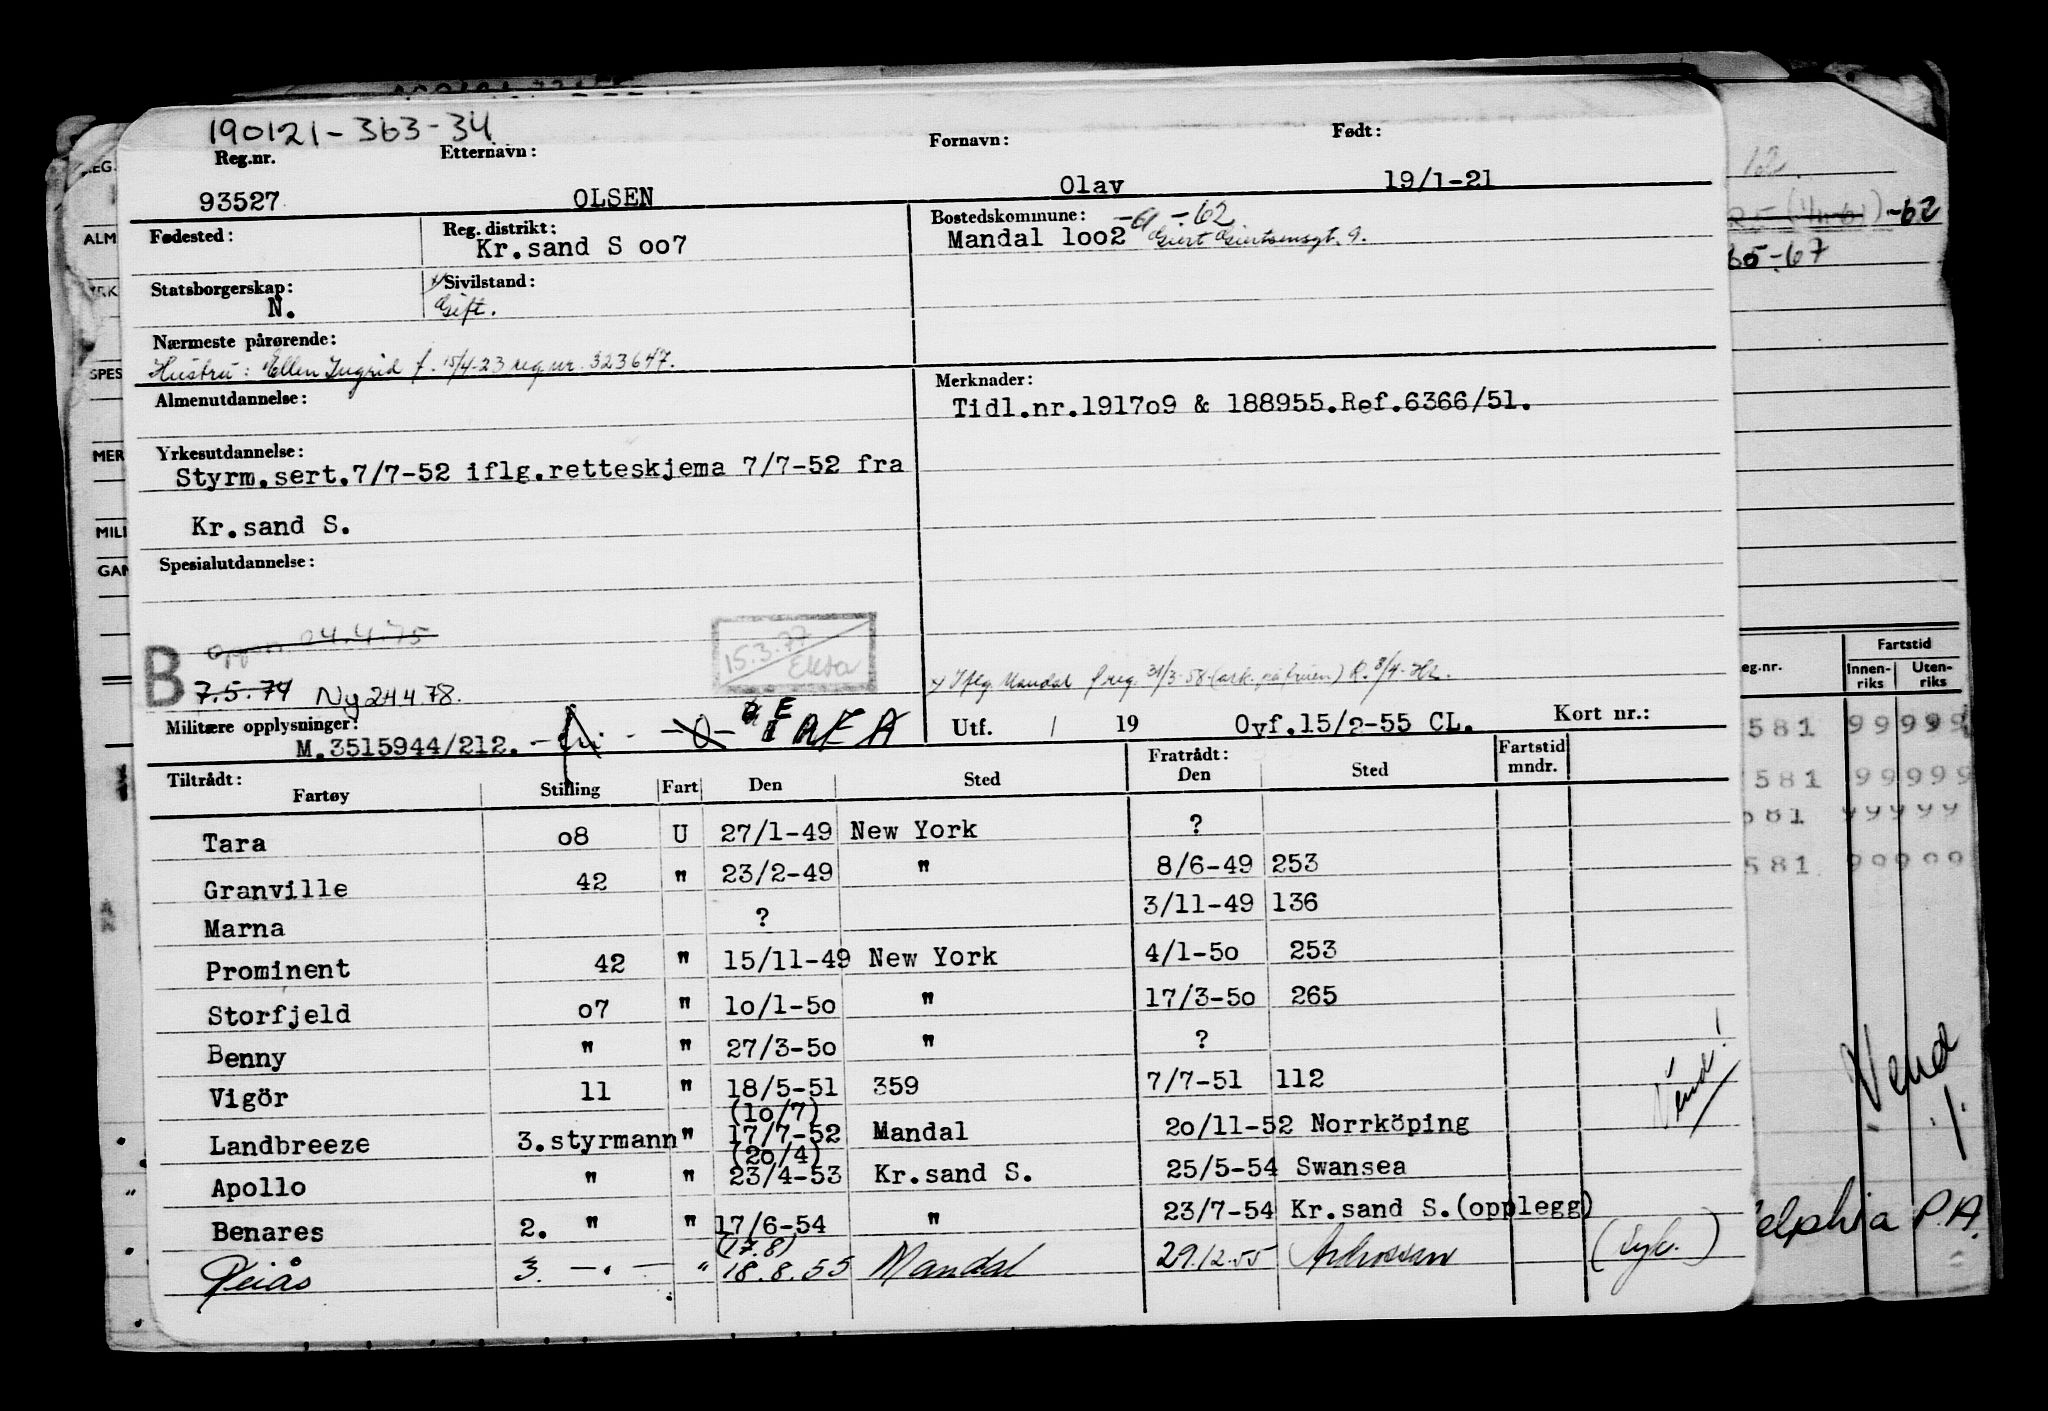 190121-363-34
Reg.nr. Etternavn: Fornavn: Født:
93527 OLSEN Olav 19/1-21
Fødested: Reg. distrikt: Bostedskommune: -62
Kr.sand S oo7 Mandal 1oo2 Giert Giertsensgt. 9.
Statsborgerskap: Sivilstand:
N. Gift.
Nærmeste pårørende:
Hustru: Ellen Ingrid f. 15/4-23 reg nr. 323647.
Almenutdannelse: Merknader:
Tidl.nr.1917o9 & 188955.Ref.6366/51.
Yrkesutdannelse:
Styrm.sert.7/7-52 iflg.retteskjema 7/7-52 fra
Kr.sand S.
Spesialutdannelse:
04.4.75
15.3.77
B
7.5.74 Ny 24 4 78.
x Iflg. Mandal freg. 31/3-58
Militære opplysninger: Utf. / 19 Ovf.15/2-55 CL. Kort nr.:
M.3515944/212.
Tiltrådt: Fratrådt: Fartstid
Fartøy Stilling Fart Den Sted Den Sted mndr.
Tara o8 U 27/1-49 New York ?
Granville 42 " 23/2-49 " 8/6-49 253
Marna ? 3/11-49 136
Prominent 42 " 15/11-49 New York 4/1-5o 253
Storfjeld o7 " 1o/1-5o " 17/3-5o 265
Benny " " 27/3-5o " ?
Vigör 11 " 18/5-51 359 7/7-51 112
(1o/7)
Landbreeze 3.styrmann " 17/7-52 Mandal 2o/11-52 Norrköping
(2o/4)
Apollo " " 23/4-53 Kr.sand S. 25/5-54 Swansea
Benares 2. " " 17/6-54 " 23/7-54 Kr.sand S.(opplegg)
(17.8)
3. —"— " 18.8.55 Mandal 29.12.55 Ardrossan (syk.)
Vend!
62.
-62
65-67
eg.nr. Fartstid
Innen-riks Uten-riks
581 99999
581 99999
581 99999
581 99999
Vend
elphia P.A.
REG.
ALM
YRK
SPES
MER
MILI
GAN